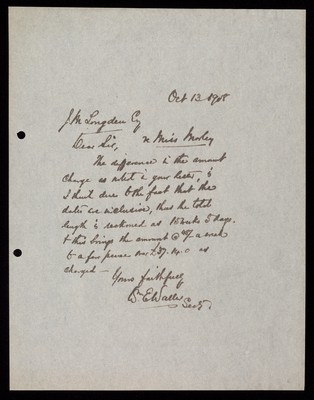 Oct 13 1908
J M Longden Esq
Dear Sir,
re Miss Morley
The difference in the amount
charge as noted in your letter, is
I think due to the fact that the
dates are inclusive, thus the total
length is reckoned as 15 weeks 5 days.
& this brings the amount @ a week
to a few pence over £ as
charged —
Yours faithfully
Wm E Walter
Secty.